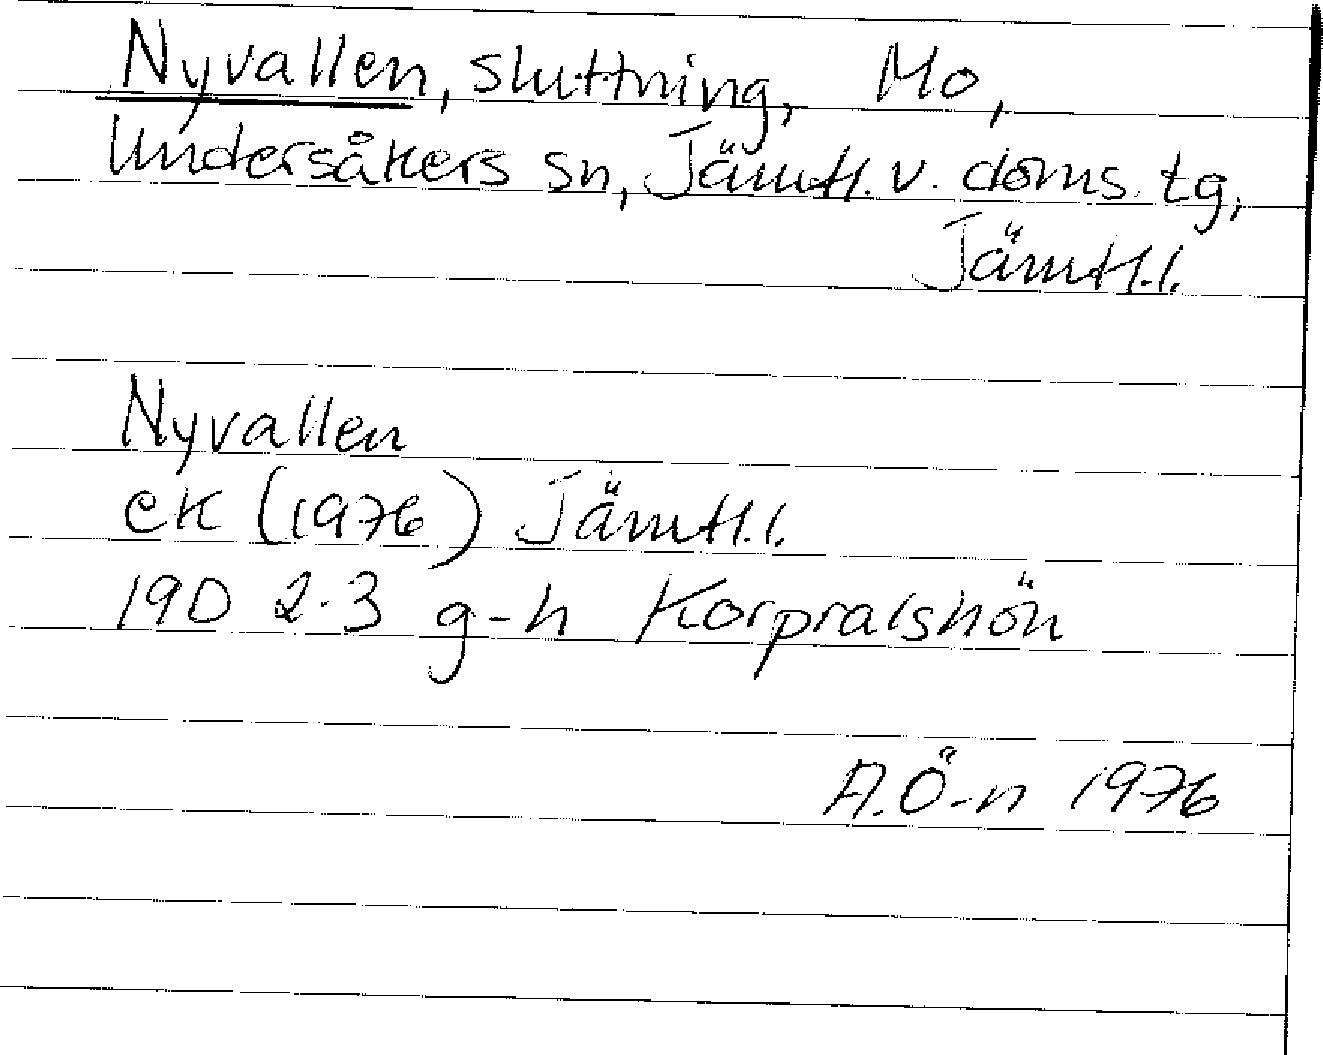 Nyvallen, sluttning, Mo,
Undersåkers sn, Jämtl. v. doms. tg,
Jämtl.l.
Nyvallen
ek (1976) Jämtl.l.
19D 2-3 g-h Korpralshön
A.Ö-n 1976